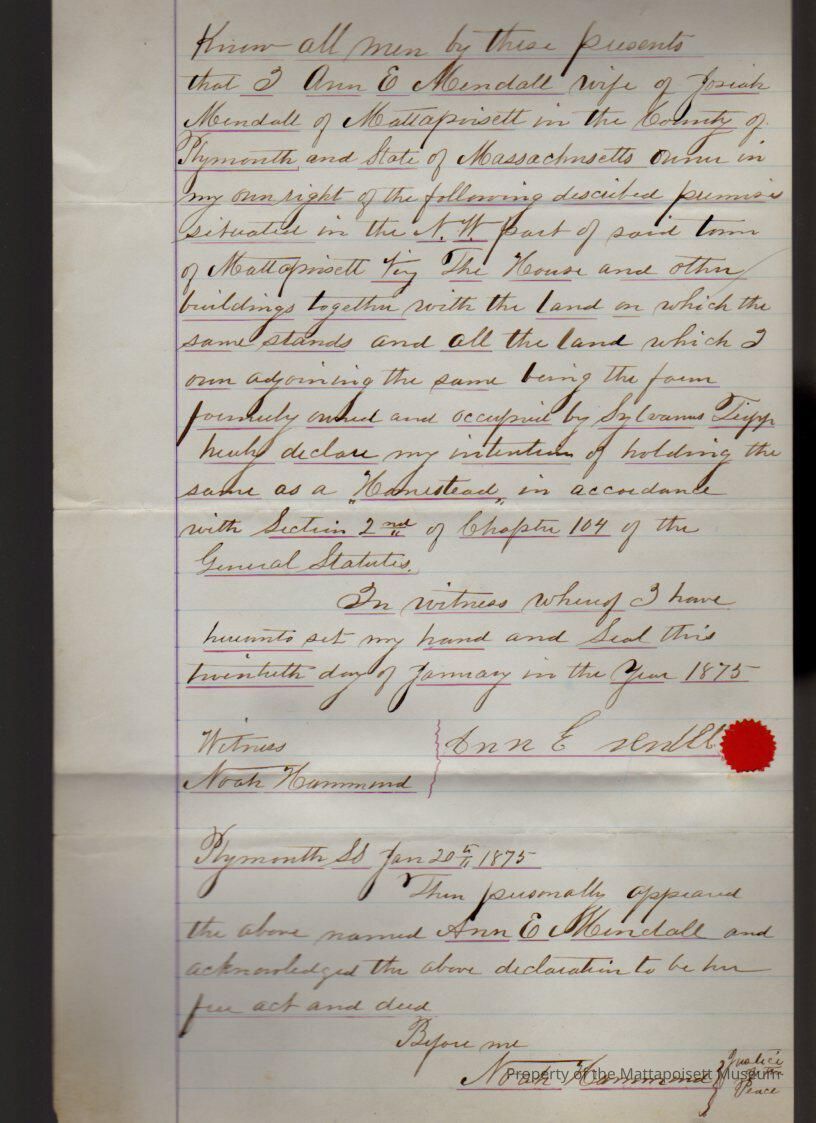 Know all men by these presents
that I Ann E Mendall wife of Josiah
Mendall of Mattapoisett in the County of
Plymouth and State of Massachusetts owner in
my own right of the following described premises
situated in the N. W. part of said town
of Mattapoisett Viz The House and other
buildings together with the land on which the
same stands and all the land which I
own adjoining the same being the farm
formerly owned and occupied by Sylvanus Tripp
hereby declare my intention of holding the
same as a „Homestead„ in accordance
with Section 2nd of Chapter 104 of the
General Statutes.
In witness whereof I have
hereunto set my hand and Seal this
twentieth day of January in the Year 1875
Witness
Ann E
Noah Hammond
Plymouth SS Jan 20th 1875
Then personally appeared
the above named Ann E Mendall and
acknowledged the above declaration to be her
free act and deed
Before me
Noah Hammond Justice
of the
Peace
Property of the Mattapoisett Museum